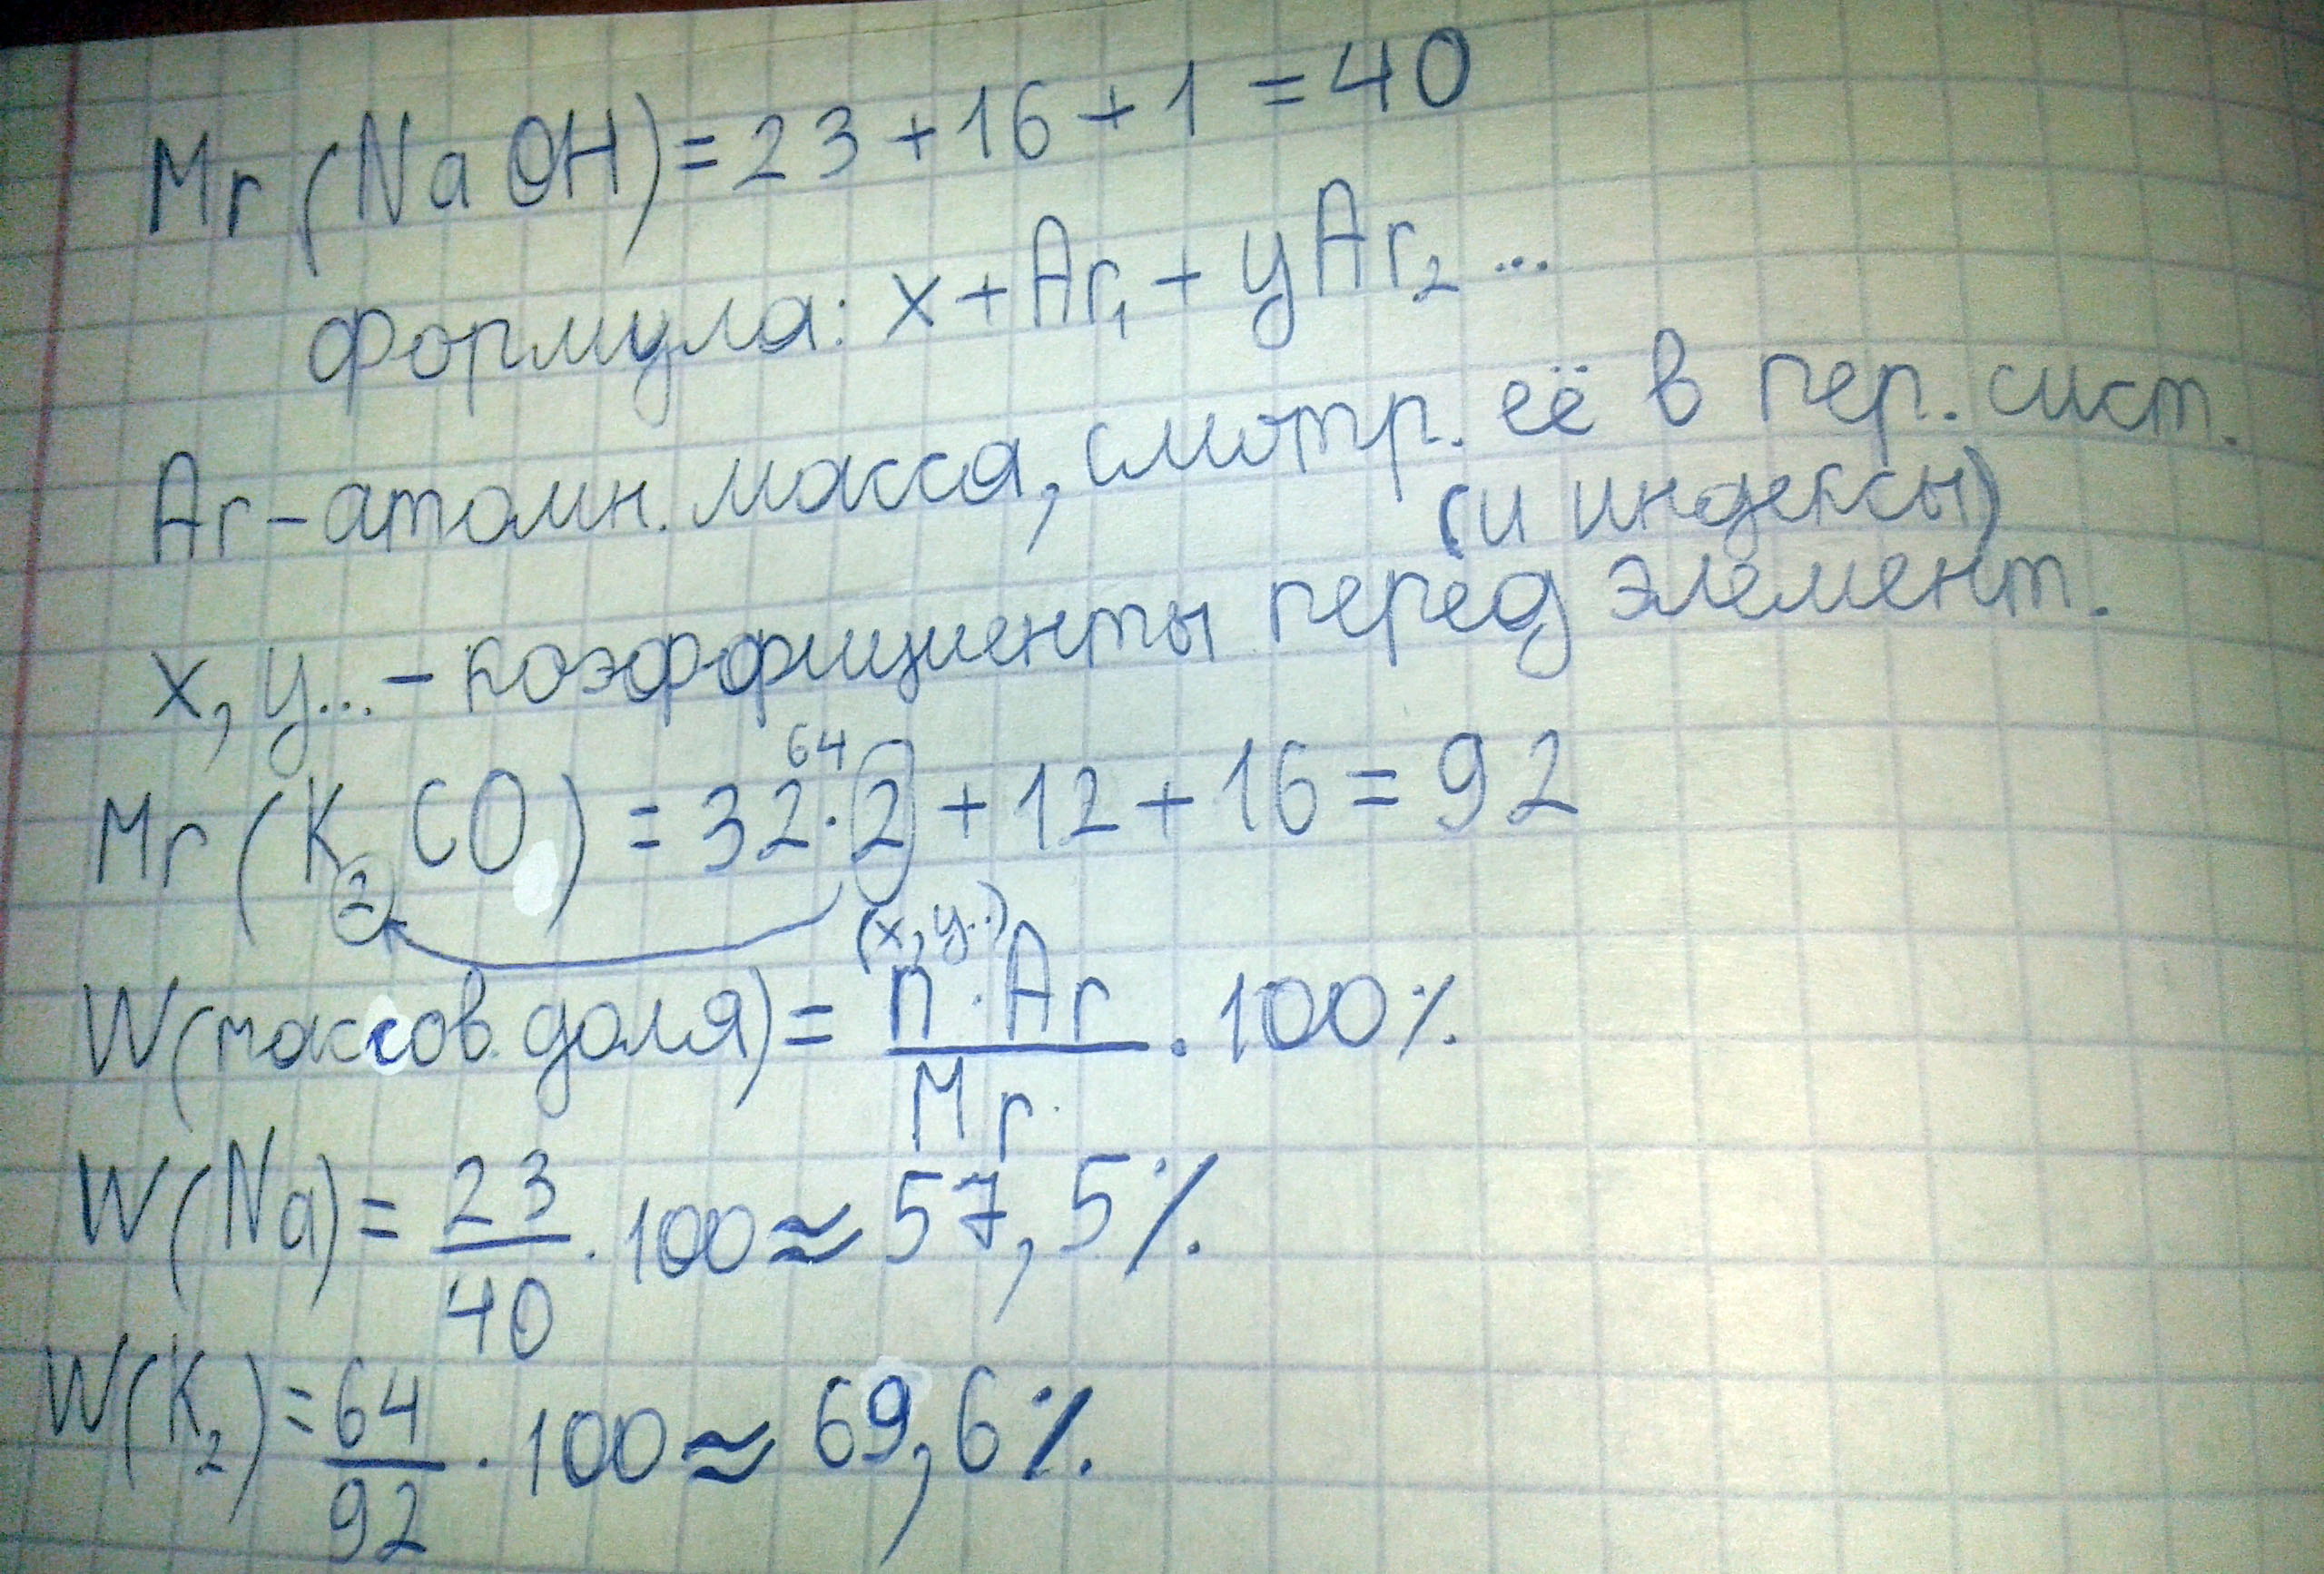 Mr(NaOH)=23+16+1=40
формула: x+Ar₁+yAr₂...
Ar-атомн. масса, смотр. её в пер. сист.
(и индексы)
x, y...-коэффициенты перед элемент.
64
Mr(K₂CO)=32·2+12+16=92
(x, y..)
W(массов. доля)=n·Ar/Mr·100%
W(Na)=23/40·100≈57,5%
W(K₂)=64/92·100≈69,6%